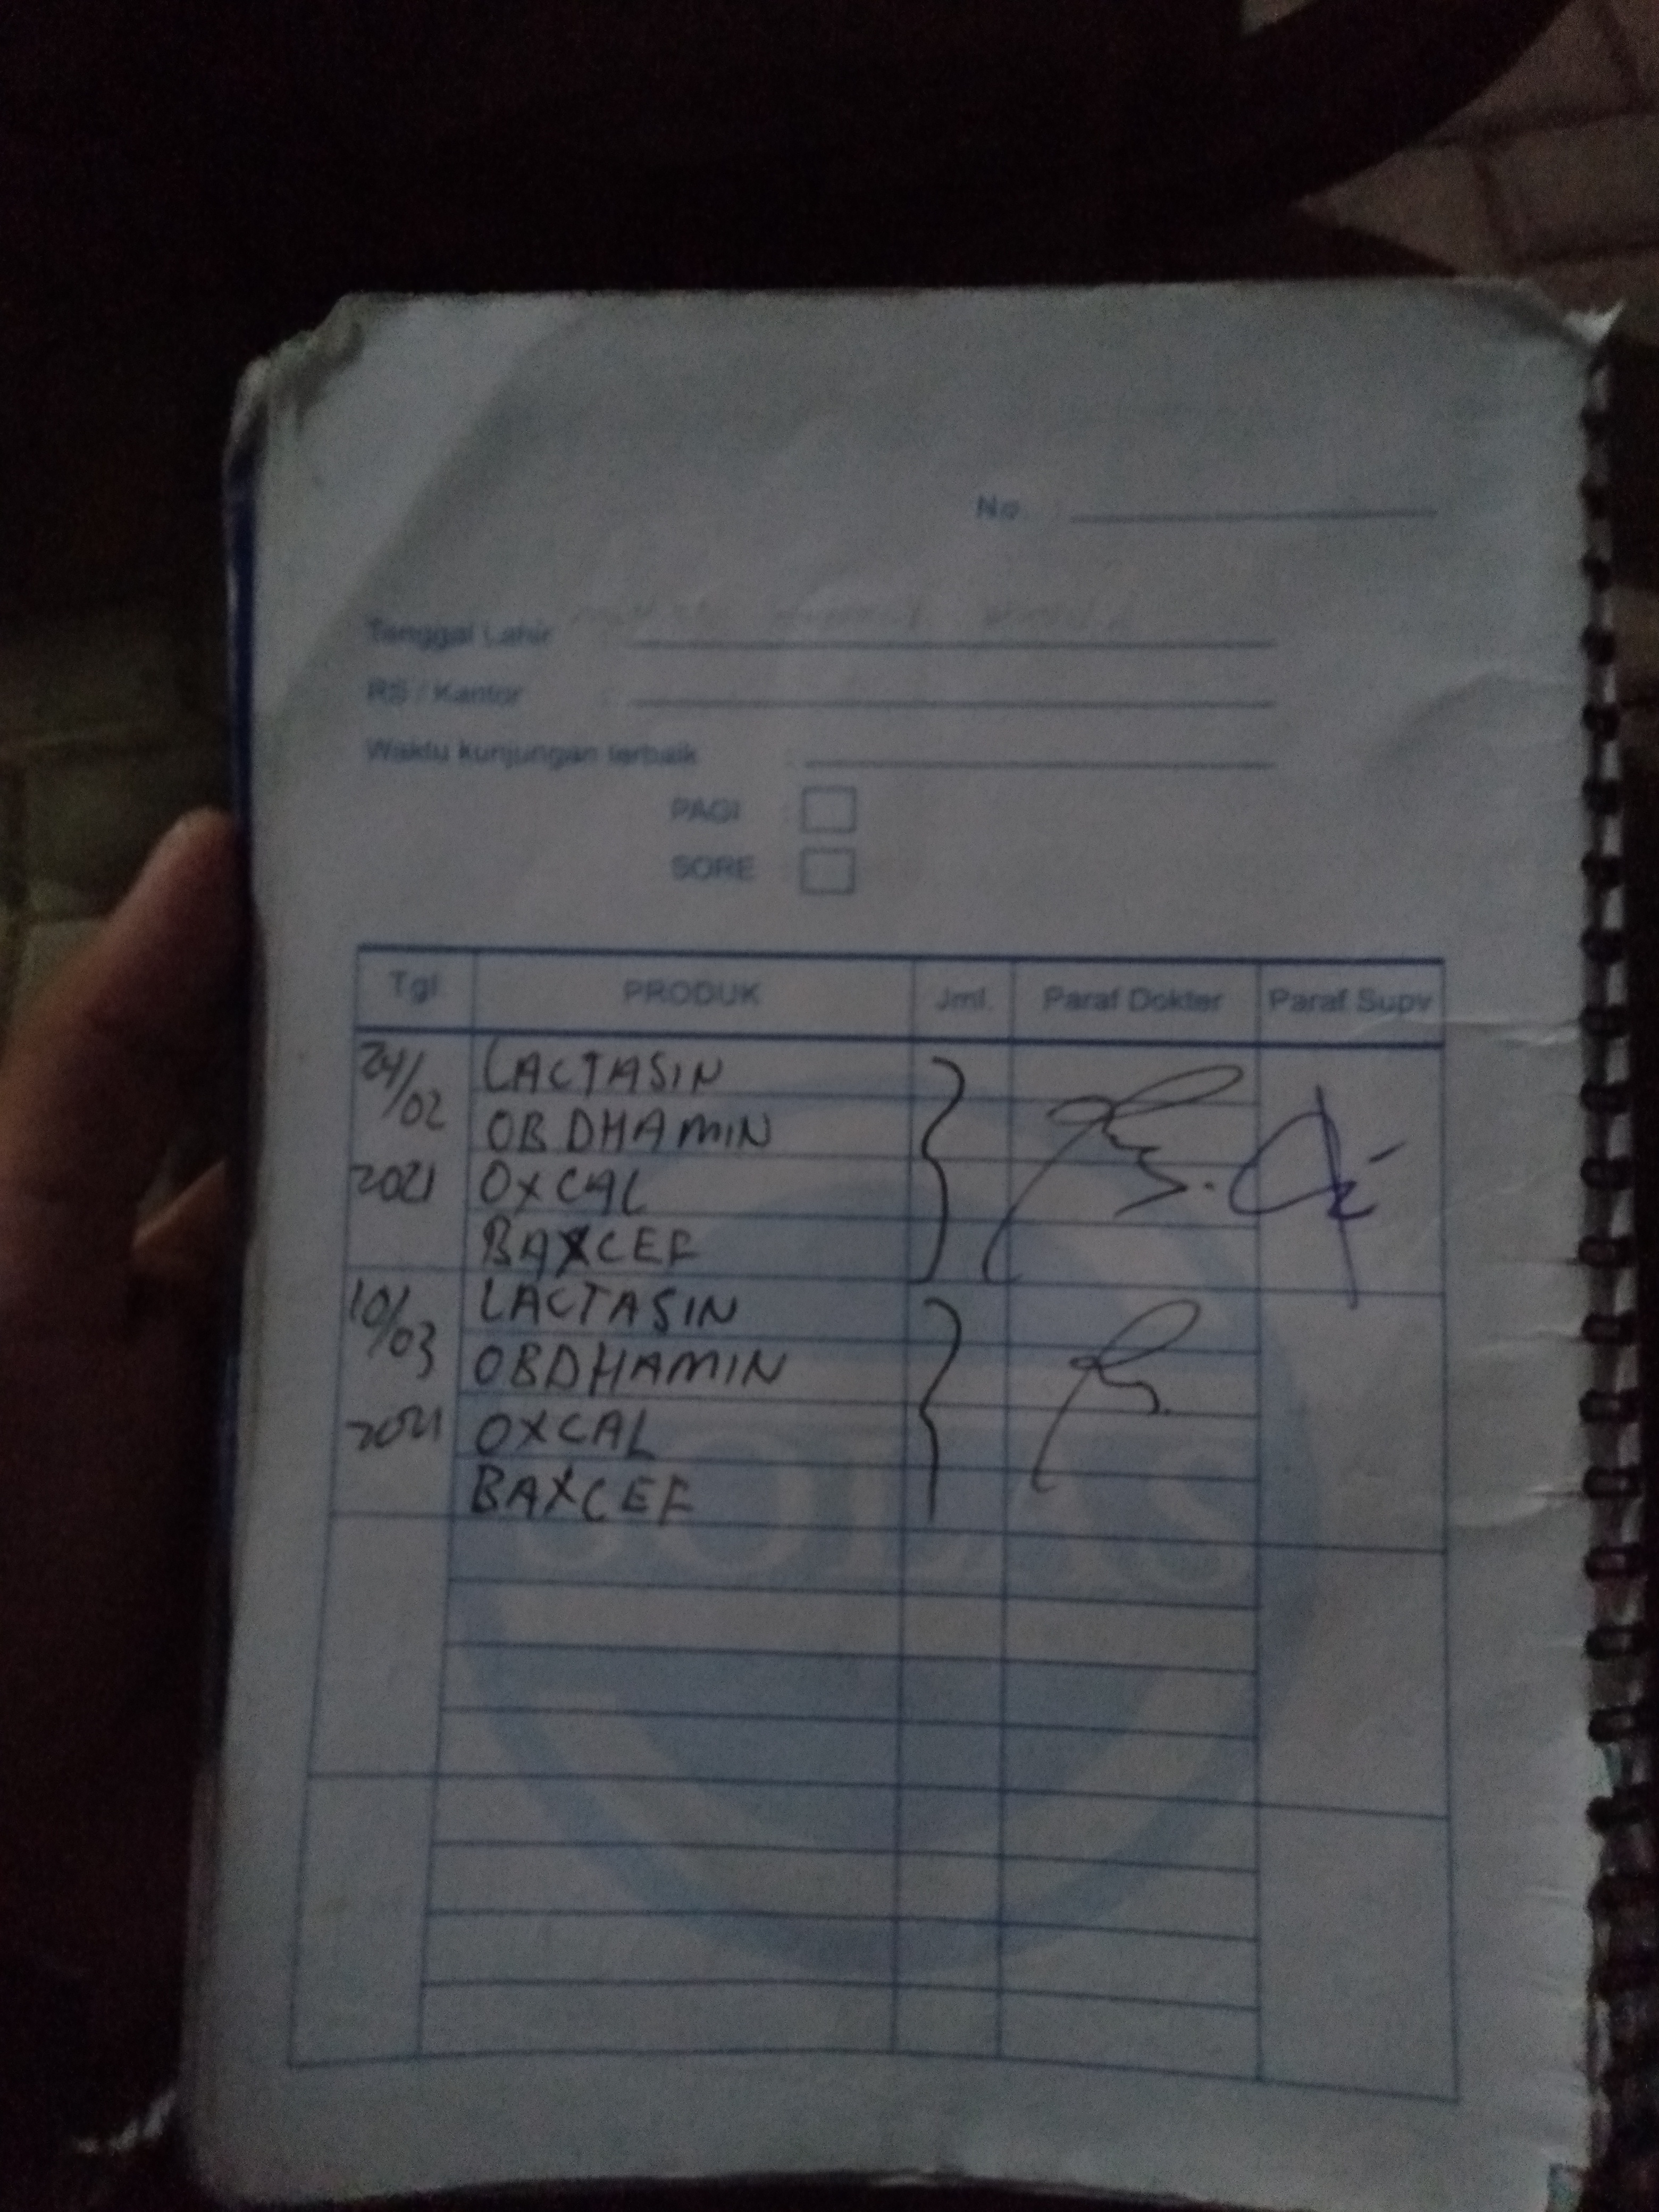 No. :
Tanggal Lahir
RS / Kantor :
Waktu kunjungan terbaik :
PAGI
SORE
Tgl PRODUK Jml. Paraf Dokter Paraf Supv
24/02 LACTASIN
OBDHAMIN
2021 OXCAL
BAXCEF
10/03 LACTASIN
OBDHAMIN
2021 OXCAL
BAXCEF